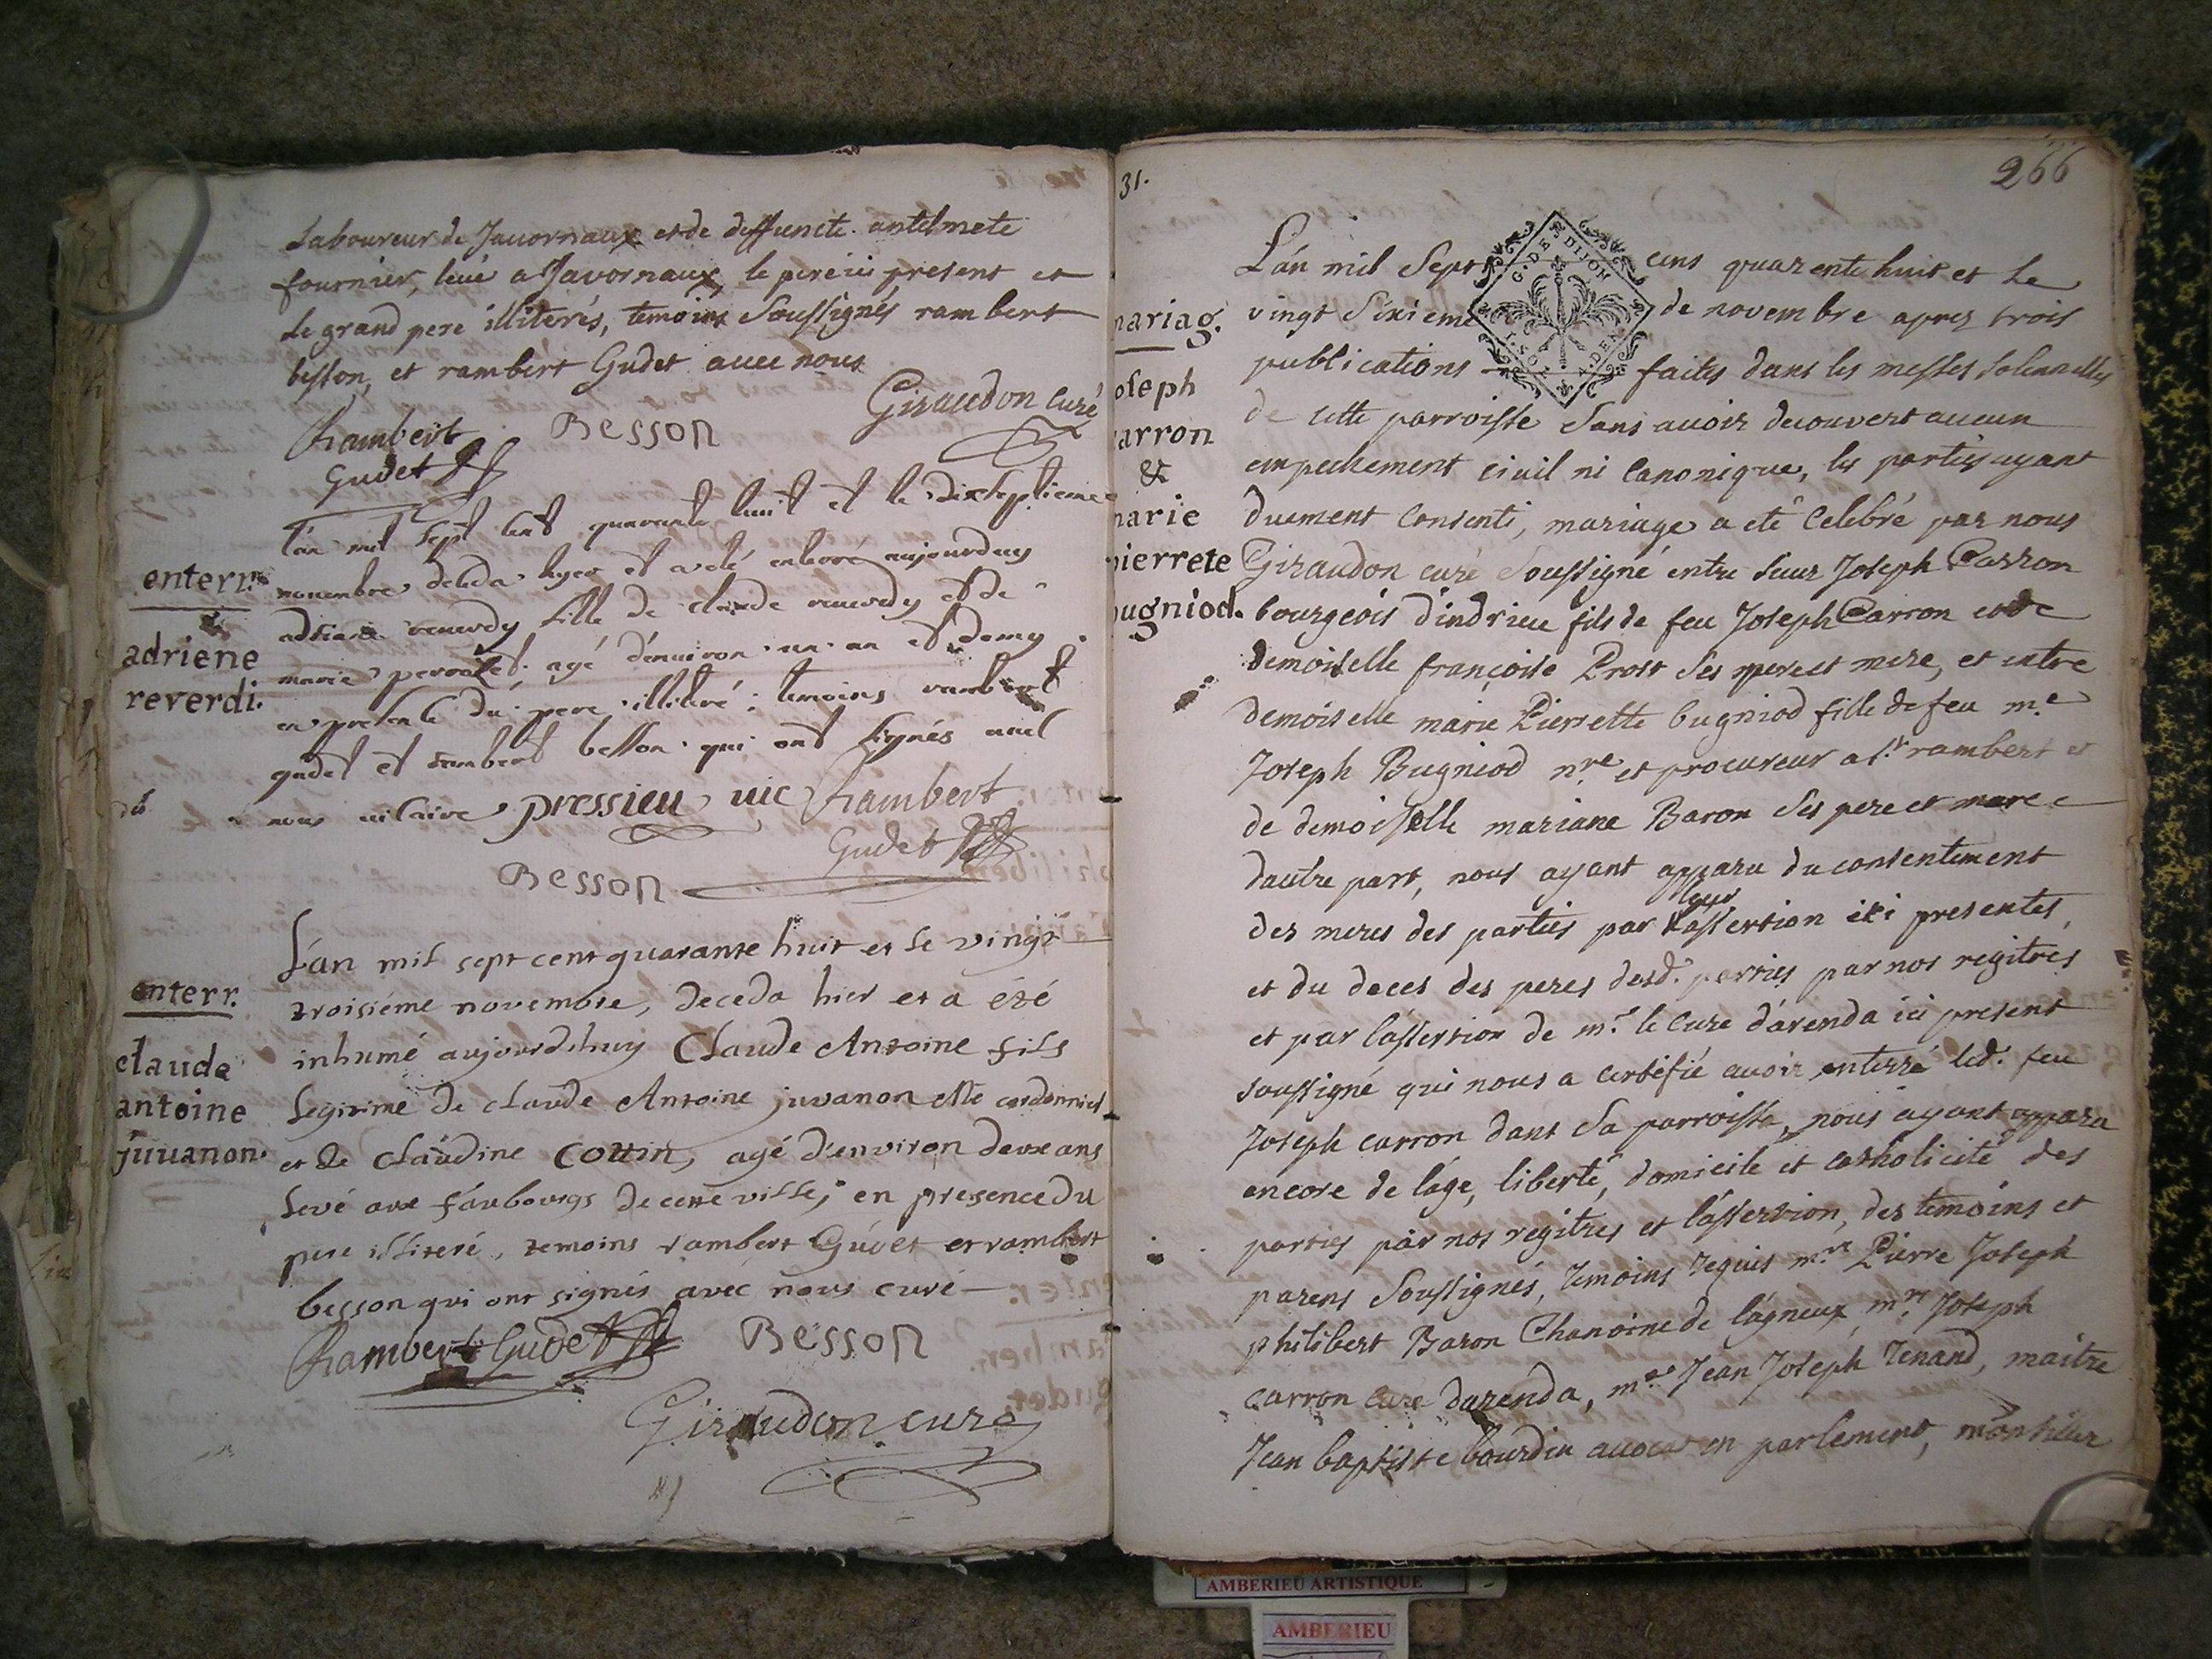 Laboureur de Javornaux et de deffuncte antelmete
fournier, levé a Javornaux, le pere ici present et
le grand pere illiterés, temoins Soussignés rambert
besson, et rambert Gudet avec nous
Giraudon curé
Rambert
Besson
Gudet
enterr.
adriene
reverdi.
L'an mil sept cent quarante huit et le dixseptieme
novembre deceda hyer et a eté enterré aujourduy
adriane reverdy fille de claude reverdy et de
marie agé d'environ un an et demy
en presence du pere illiteré : temoins rambert
gudet et rambert besson qui ont signés avec
nous vicaire pressieu vic Rambert
Gudet
Besson
enterr.
claude
antoine
juvanon.
L'an mil sept cent quarante huit et le vingt
troisiéme novembre, deceda hier et a été
inhumé aujourdhuy Claude Antoine fils
legitime de claude Antoine juvanon Me cordonnier
et de Claudine Cottin, agé d'environ deux ans
levé aux faubourgs de cette ville; en presence du
pere illiteré, temoins rambert Gudet et rambert
besson qui ont signés avec nous curé
Rambert Gudet Besson
Giraudon curé
31.
266
G. DE DIJON
mariag.
oseph
arron
&
marie
pierrete
ugniod.
L'an mil Sept cens quarente huit et le
vingt Sixieme de novembre aprez trois
publications faites dans les messes solennelles
de cette parroisse Sans avoir decouvert aucun
empechement civil ni Canonique, les parties ayant
duement Consenti, mariage a eté Celebré par nous
Giraudon curé Soussigné entre sieur Joseph Carron
bourgeois d'indrieu fils de feu Joseph Carron et de
demoiselle françoise Prost Ses pere et mere, et entre
demoiselle marie Pierrette bugniod fille de feu m.e
Joseph Bugniod n.re et procureur a S.t rambert et
de demoiselle mariane Baron Ses pere et mere
dautre part, nous ayant apparu du consentement
des meres des parties par leur assertion ici presentes
et du deces des peres desd. parties par nos regitres
et par l'assertion de m.r le Curé d'arenda ici present
soussigné qui nous a certifié avoir enterré led. feu
Joseph carron dans Sa parroisse, nous ayant apparu
encore de l'age, liberté, domicile et catholicité des
parties par nos regitres et l'assertion, des temoins et
parens Soussignés, temoins requis m.re Pierre Joseph
philibert Baron Chanoine de lagneux, m.re Joseph
carron curé darenda, m.e Jean Joseph Tenand, maitre
Jean baptiste bourdin avocat en parlement, monsieur
AMBERIEU ARTISTIQUE
AMBERIEU